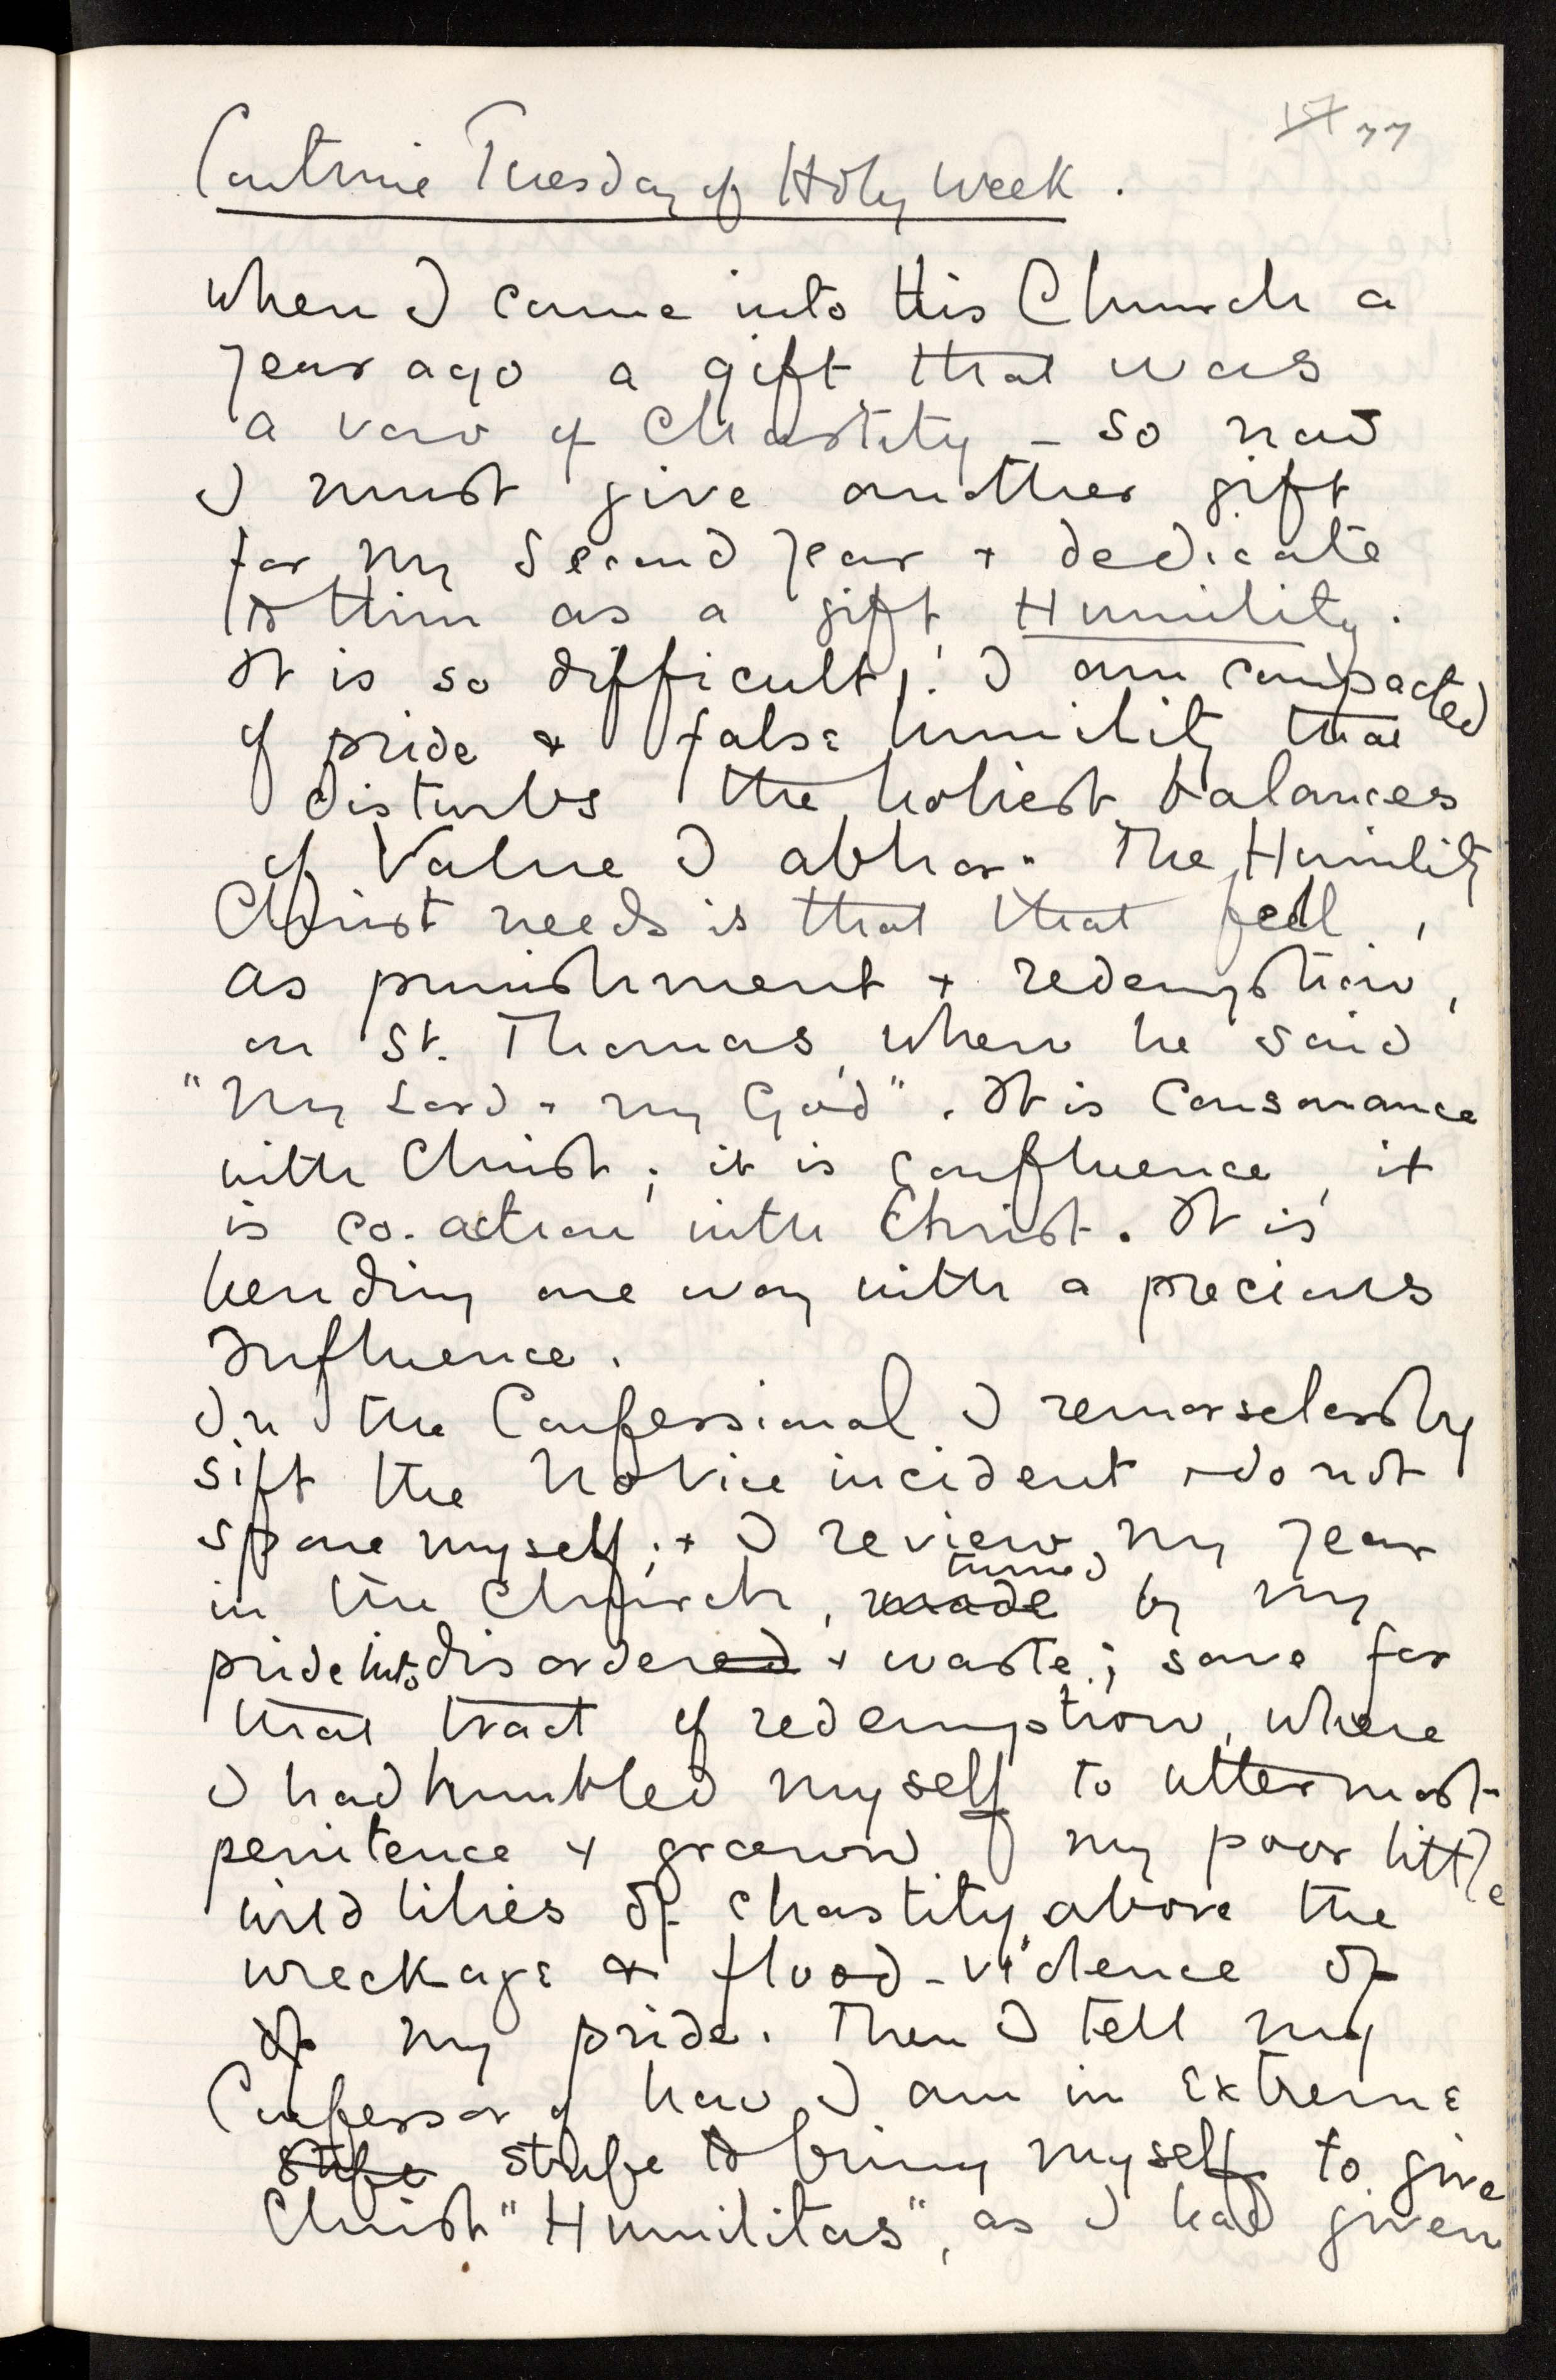 77
Continue Tuesday of Holy Week.
When I came into this Church a
year ago a gift that was
a vow of Chastity - so now
I must give another gift
for my Second year + dedicate
to Him as a gift Humility.
It is so difficult! I am compacted
of pride & false humility that
disturbs the holiest balances
of Value I abhor. The Humility
Christ needs is that that fell,
as punishment + redemption,
on St. Thomas when he said
"My Lord & my God". It is Consonance
with Christ; it is confluence, it
is co-action with Christ. It is
bending one way with a precious
Influence.
In the Confessional I remorselessly
sift the Novice incident + do not
spare myself; + I review my year
in the Church, made turned by my
pride into disordered + waste; save for
that tract of redemption, where
I had humbled myself to uttermost
penitence & grown my poor little
wild lilies of chastity above the
wreckage & flood-violence of
of my pride. Then I tell my
Confessor of how I am in extreme
strife strife to bring myself to give
Christ "Humilitas", as I had given